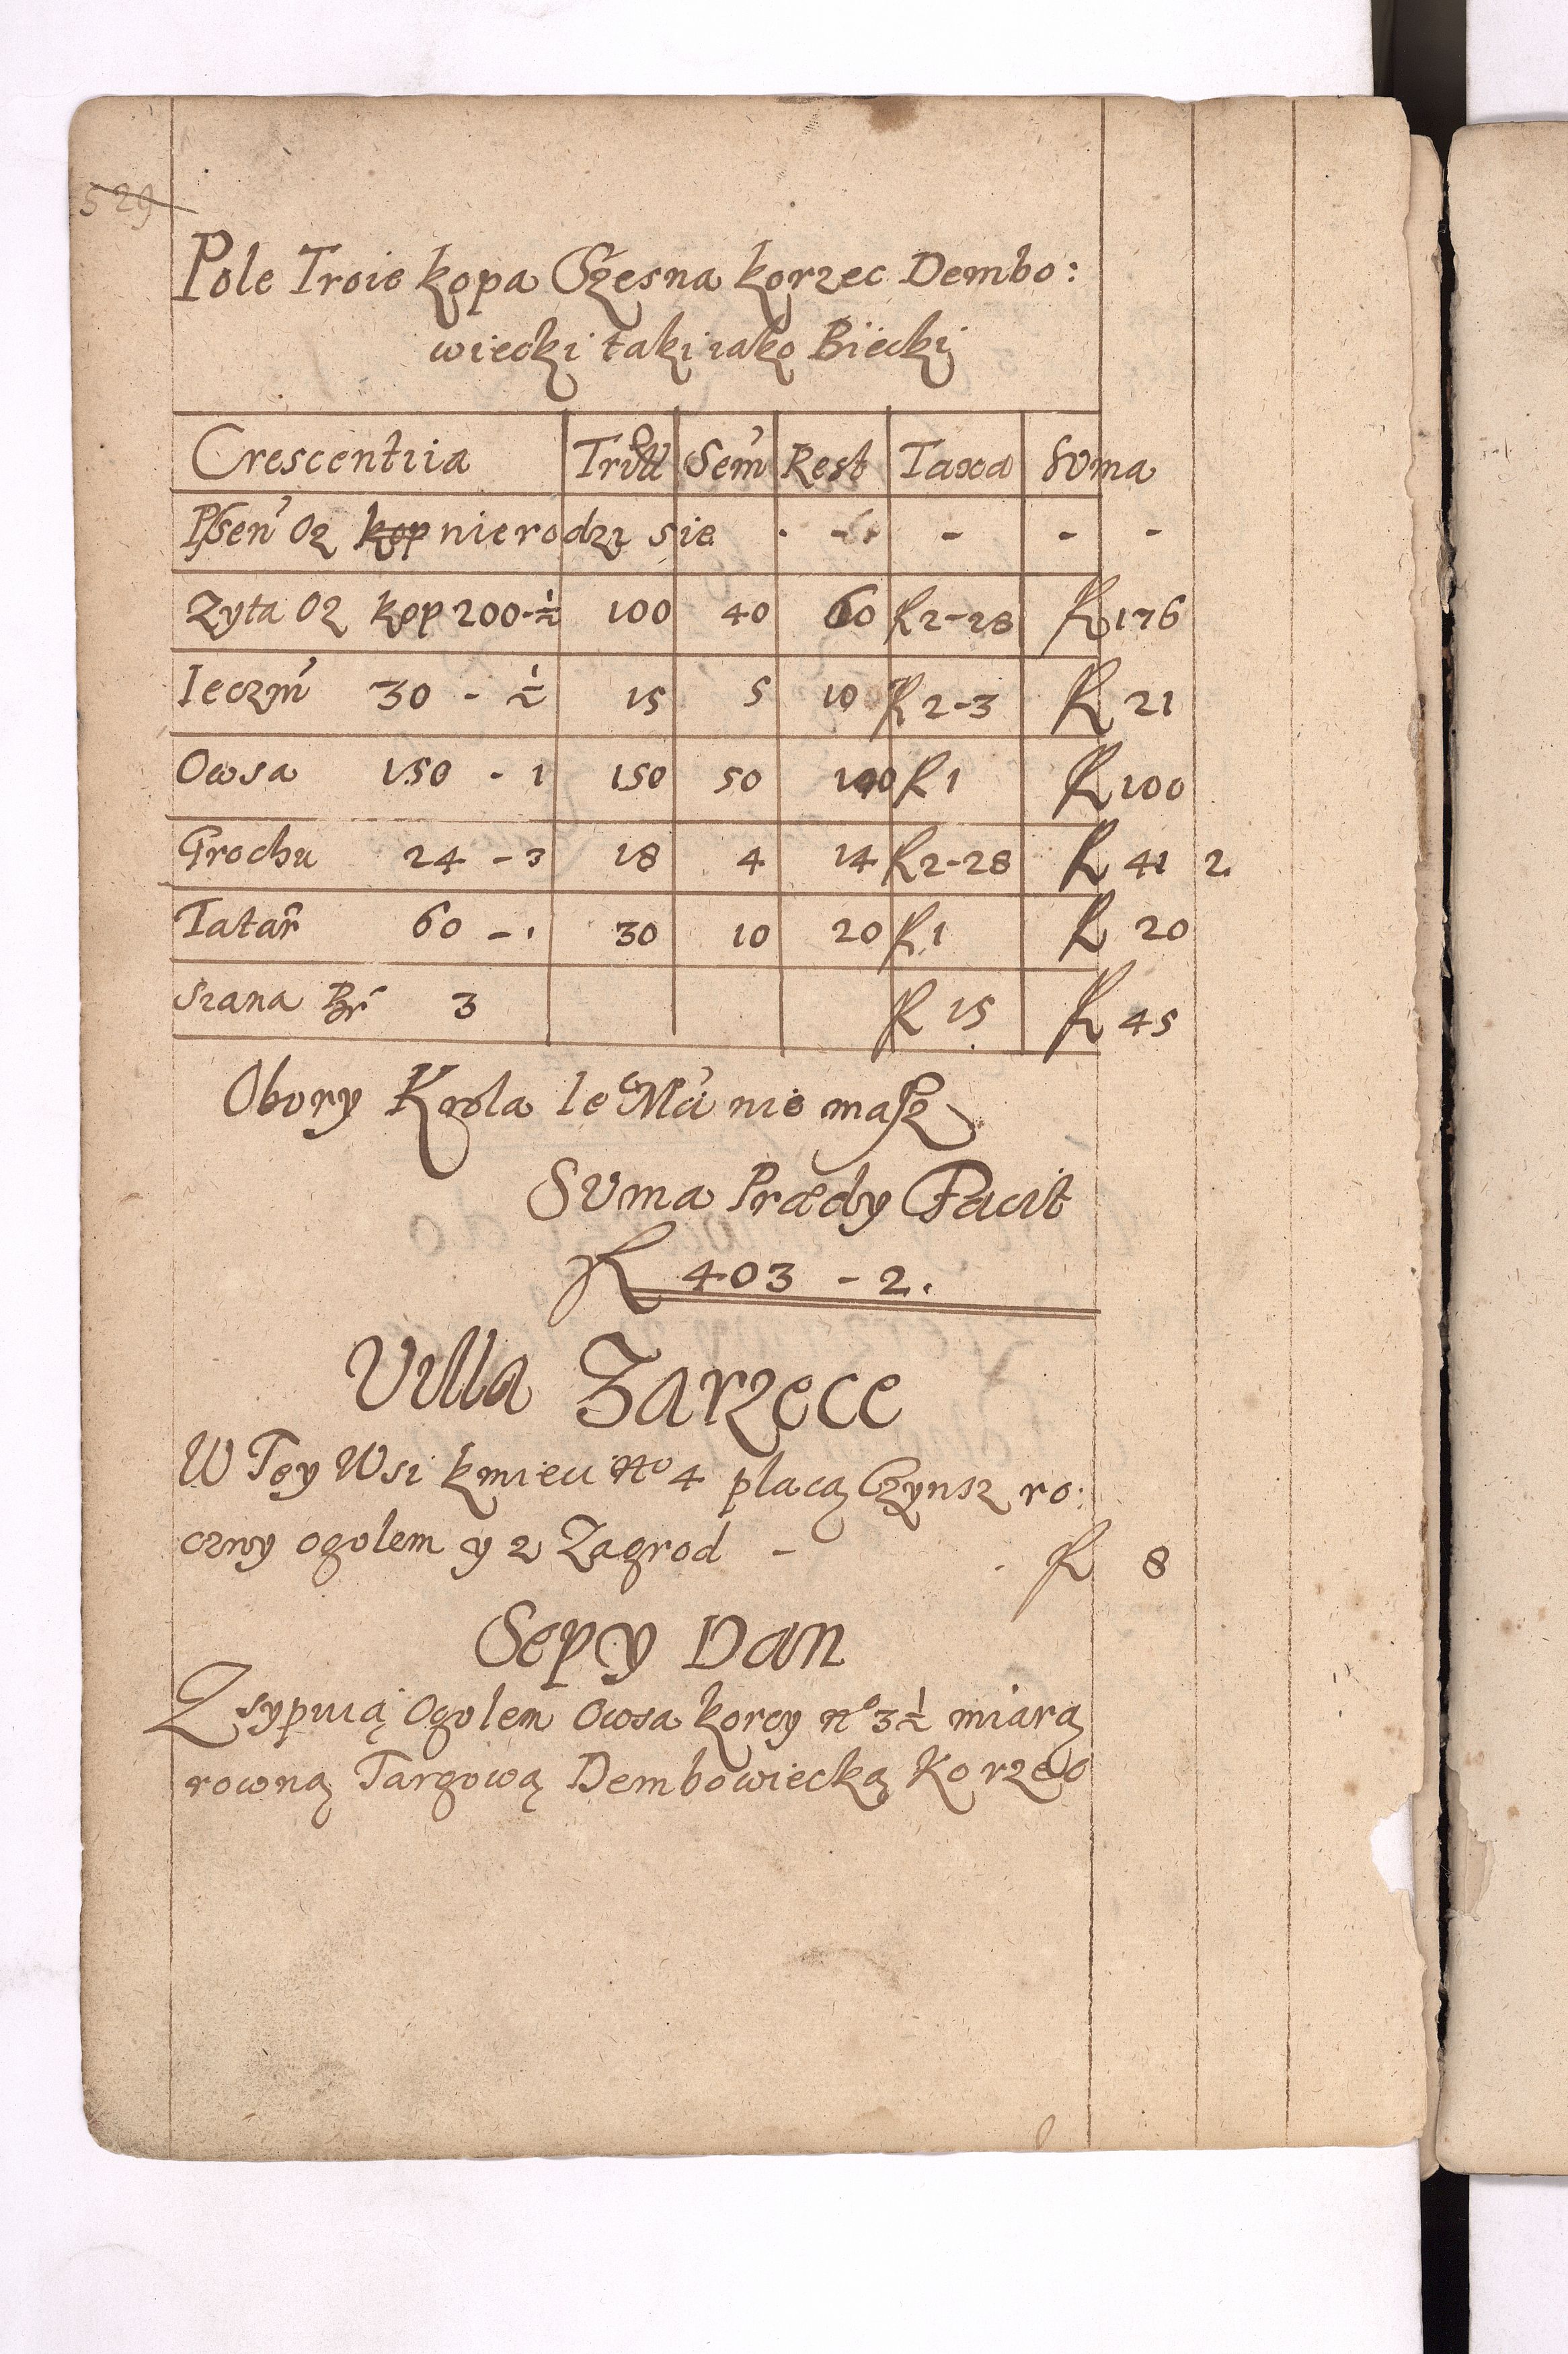 529
Pole Troie kopa Czesna korzec Dembo:
wiecki taki iako Biecki
Crescentiia Tritt Sem Rest Taxa Suma
Psen Oz kop nierodzi sie - - - - -
Zyta Oz kop 200-½ 100 40 60 R 2-28 R 176
Ieczm 30 - ½ 15 5 10 R 2-3 R 21
Owsa 150 - 1 150 50 100 R 1 R 100
Grochu 24 - 3 18 4 14 R 2-28 R 41 2
Tatar 60 - 1 30 10 20 R 1 R 20
Siana Br 3 R 15 R 45
Obory Krola Ie Mci nie masz
Suma Prædy Facit
R 403 - 2.
Villa Zarzece
W Tey Wsi kmieci No 4 placą Czynsz ro:
czny ogolem y 2 Zagrod - R 8
Sepy Dan
Zsypuią Ogolem Owsa korcy no 3½ miarą
rowną Targową Dembowiecką Korzec